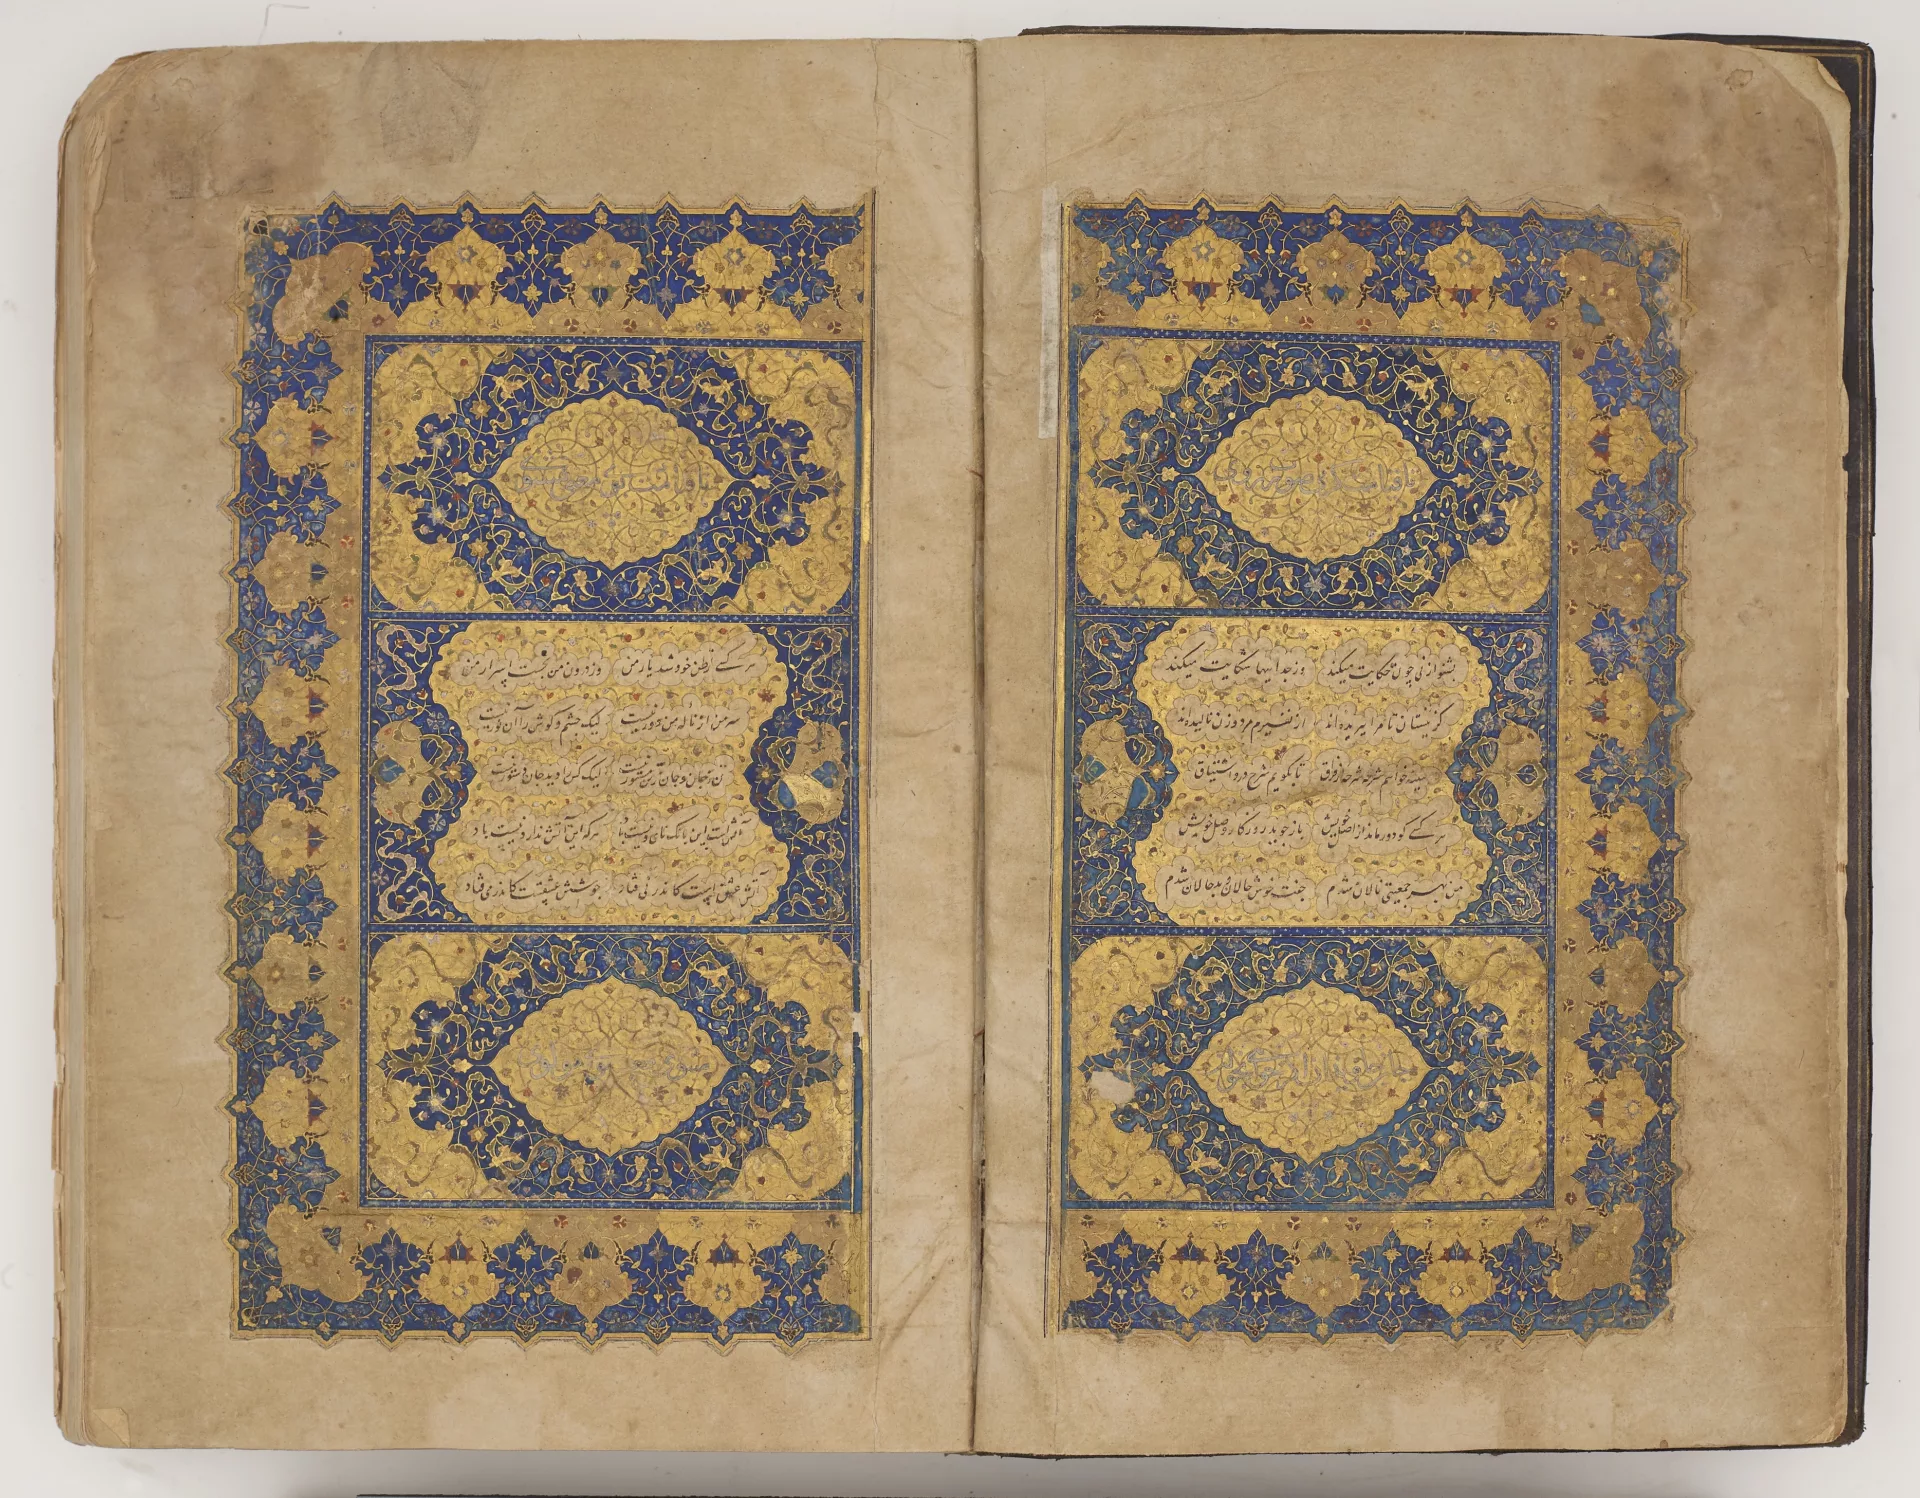 بشنو از نی چون حکایت میکند وز جداییها شکایت میکند
کز نیستان تا مرا ببریده‌اند از نفیرم مرد و زن نالیده‌اند
سینه خواهم شرحه شرحه از فراق تا بگویم شرح درد اشتیاق
هر کسی کو دور ماند از اصل خویش باز جوید روزگار وصل خویش
من بهر جمعیتی نالان شدم جفت خوش حالان و بد حالان شدم
هر کسی از ظن خود شد یار من وز درون من نجست اسرار من
سر من از ناله من دور نیست لیک چشم و گوش را آن نور نیست
تن ز جان و جان ز تن مستور نیست لیک کس را دید جان دستور نیست
آتش است این بانک نای و نیست باد هر که این آتش ندارد نیست باد
آتش عشق است کاندر نی فتاد جوشش عشقست کاندر می فتاد